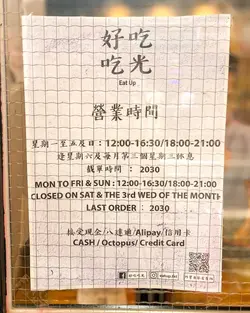 好吃
吃光
Eat Up
營業時間
星期一至五及日：12:00-16:30/18:00-21:00
逢星期六及每月第三個星期三休息
截單時間 ： 2030
MON TO FRI & SUN : 12:00-16:30/18:00-21:00
CLOSED ON SAT & THE 3rd WED OF THE MONTH
LAST ORDER : 2030
接受現金/八達通/Alipay/信用卡
CASH / Octopus/ Credit Card
好吃吃光